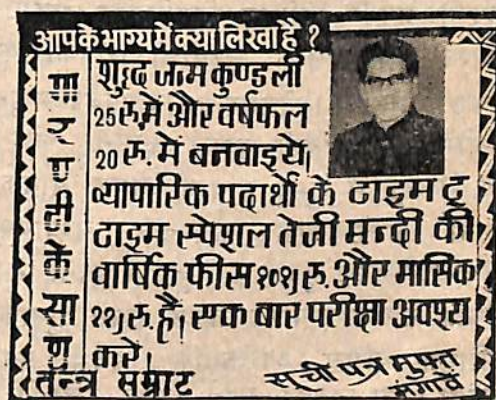 आपके भाग्य में क्या लिखा है ?
गारण्टी के साथ
शुद्ध जन्म कुण्डली
25 रु. में और वर्षफल
20 रु. में बनवाइये।
व्यापारिक पदार्थो के टाइम टू
टाइम स्पेशल तेजी मन्दी की
वार्षिक फीस १०१) रु. और मासिक
११) रु. है। एक बार परीक्षा अवश्य
करें।
तन्त्र सम्राट
सूची पत्र मुफ्त
मंगावें